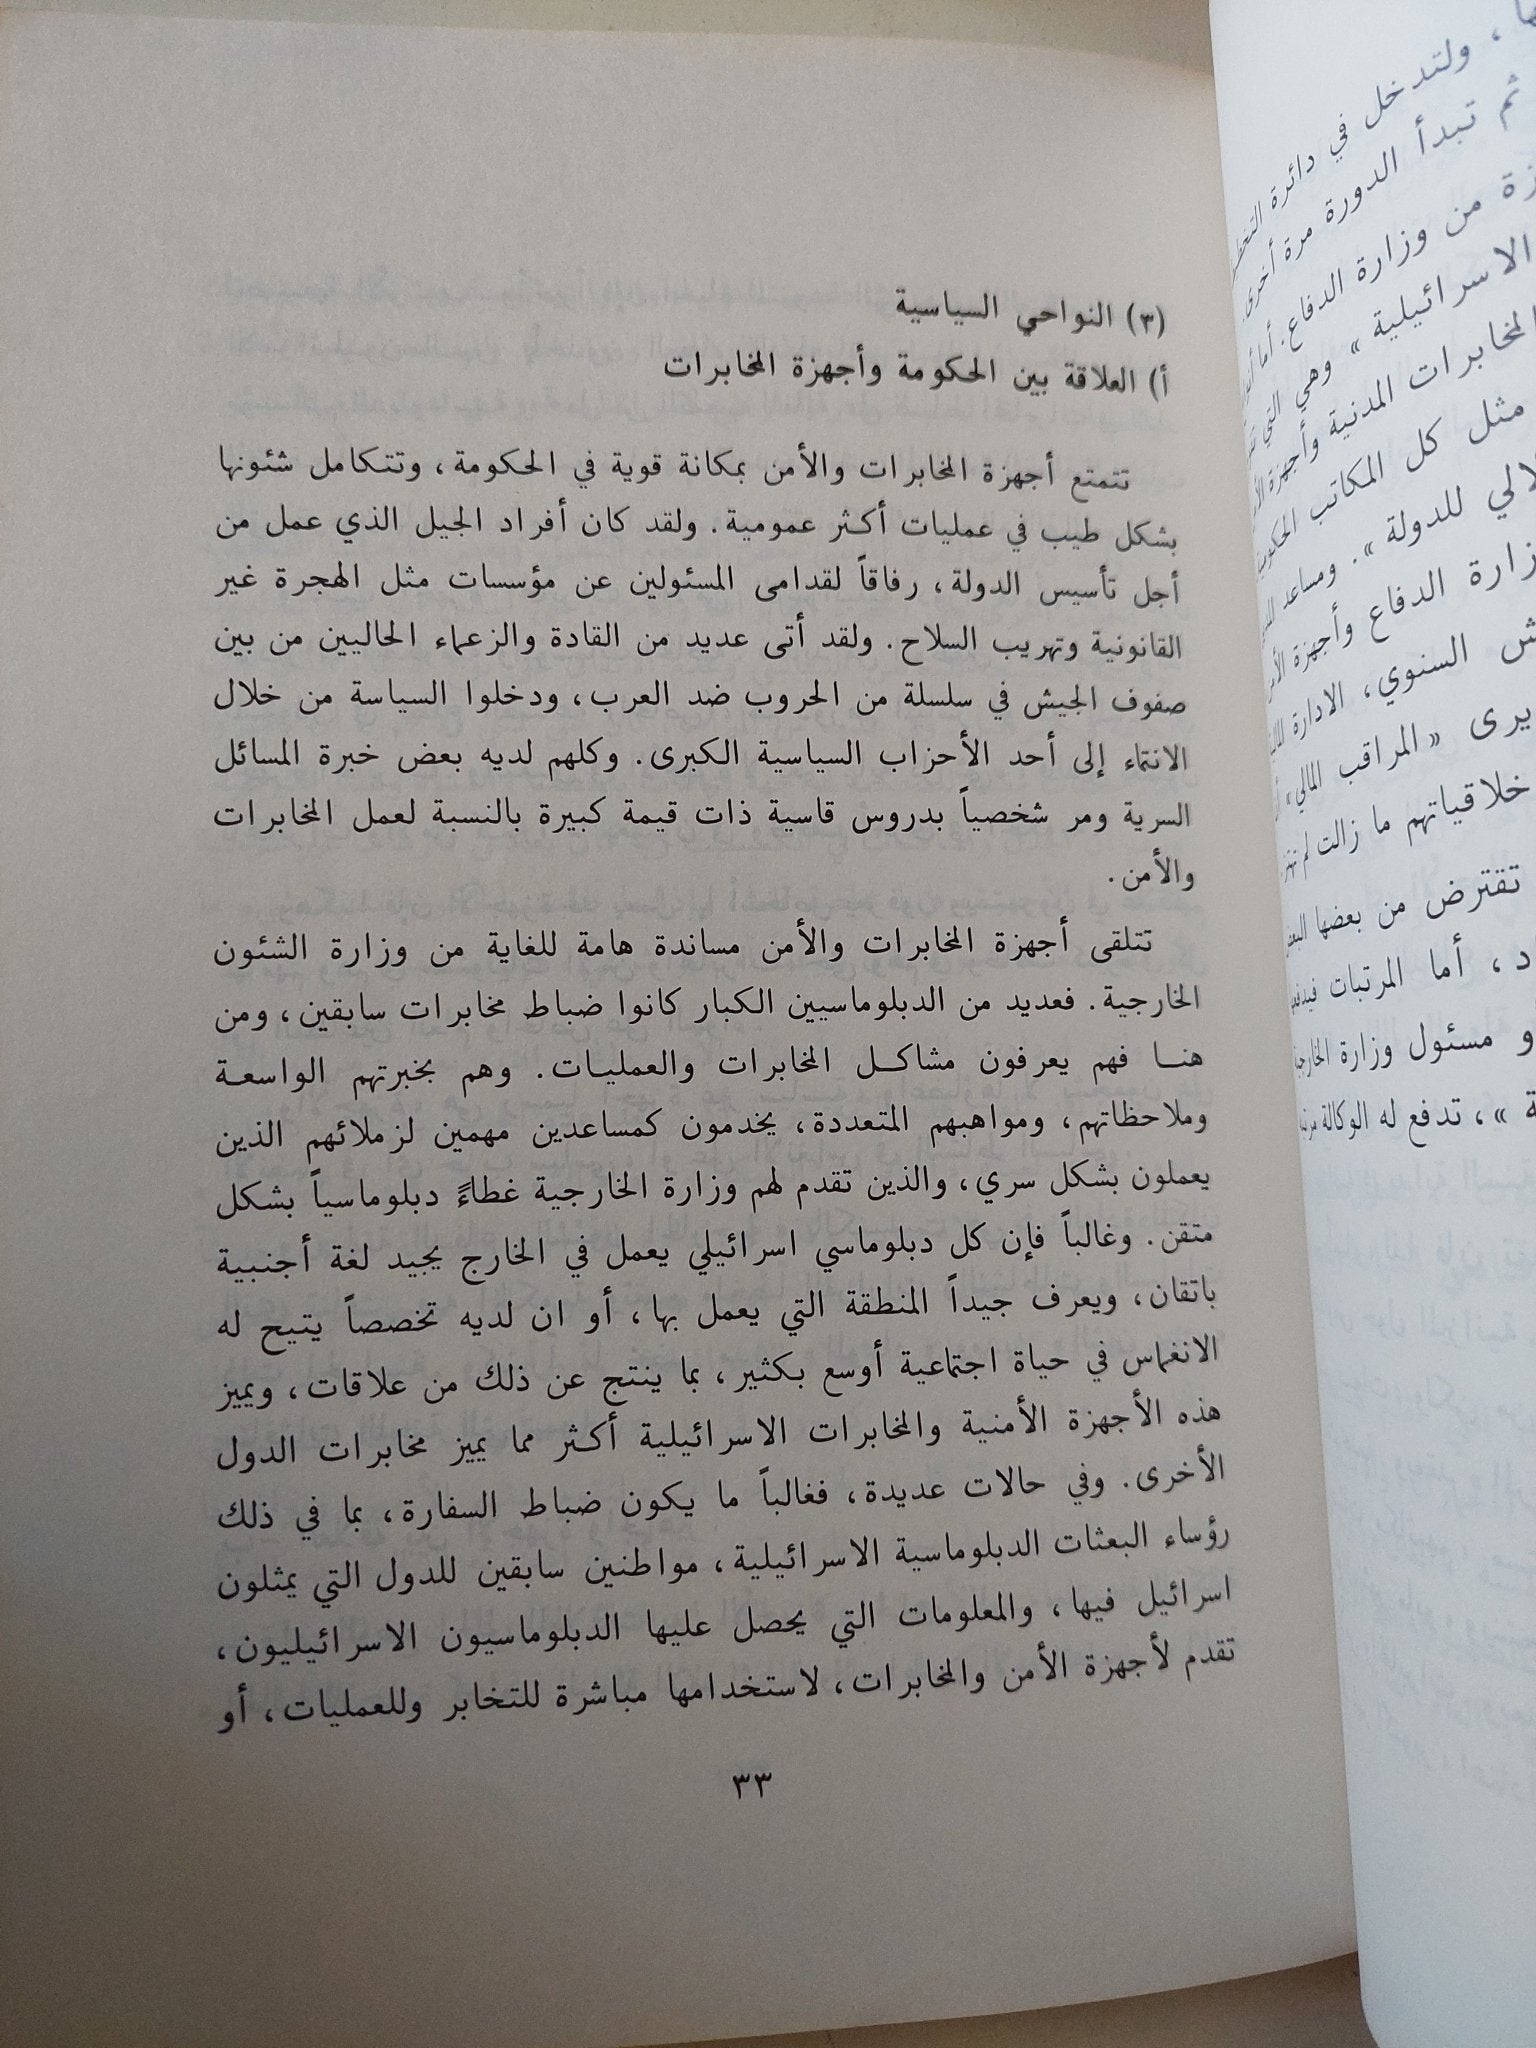 (٣) النواحي السياسية
أ) العلاقة بين الحكومة وأجهزة المخابرات
تتمتع أجهزة المخابرات والأمن بمكانة قوية في الحكومة، وتتكامل شئونها
بشكل طيب في عمليات أكثر عمومية. ولقد كان أفراد الجيل الذي عمل من
أجل تأسيس الدولة، رفاقاً لقدامى المسئولين عن مؤسسات مثل الهجرة غير
القانونية وتهريب السلاح. ولقد أتى عديد من القادة والزعماء الحاليين من بين
صفوف الجيش في سلسلة من الحروب ضد العرب، ودخلوا السياسة من خلال
الانتماء إلى أحد الأحزاب السياسية الكبرى. وكلهم لديه بعض خبرة المسائل
السرية ومر شخصياً بدروس قاسية ذات قيمة كبيرة بالنسبة لعمل المخابرات
والأمن.
تتلقى أجهزة المخابرات والأمن مساندة هامة للغاية من وزارة الشئون
الخارجية. فعديد من الدبلوماسيين الكبار كانوا ضباط مخابرات سابقين، ومن
هنا فهم يعرفون مشاكل المخابرات والعمليات. وهم بخبرتهم الواسعة
وملاحظاتهم، ومواهبهم المتعددة، يخدمون كمساعدين مهمين لزملائهم الذين
يعملون بشكل سري، والذين تقدم لهم وزارة الخارجية غطاءً دبلوماسياً بشكل
متقن. وغالباً فإن كل دبلوماسي اسرائيلي يعمل في الخارج يجيد لغة أجنبية
باتقان، ويعرف جيداً المنطقة التي يعمل بها، أو ان لديه تخصصاً يتيح له
الانغماس في حياة اجتماعية أوسع بكثير، بما ينتج عن ذلك من علاقات، ويميز
هذه الأجهزة الأمنية والمخابرات الاسرائيلية أكثر مما يميز مخابرات الدول
الأخرى. وفي حالات عديدة، فغالباً ما يكون ضباط السفارة، بما في ذلك
رؤساء البعثات الدبلوماسية الاسرائيلية، مواطنين سابقين للدول التي يمثلون
اسرائيل فيها، والمعلومات التي يحصل عليها الدبلوماسيون الاسرائيليون،
تقدم لأجهزة الأمن والمخابرات، لاستخدامها مباشرة للتخابر وللعمليات، أو
٣٣
، ولتدخل في دائرة
ثم تبدأ الدورة مرة أخرى.
من وزارة الدفاع. أما
الاسرائيلية» وهي التي
المخابرات المدنية وأجهزة
مثل كل المكاتب
للدولة». ومساعد
وزارة الدفاع وأجهزة
السنوي، الادارة
يرى «المراقب المالي»
ما زالت لم
تقترض من بعضها
، أما المرتبات
و مسئول وزارة
»، تدفع له الوكالة